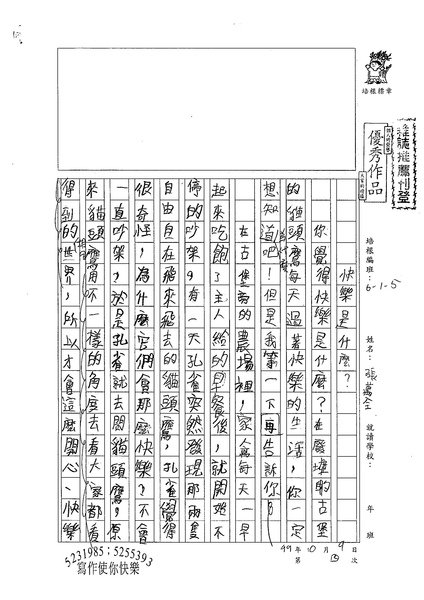 培根標章
誌推薦刊登
優秀作品
培根編班：6-1-5
姓名：張
就讀學校：
年
班
99年10月9日
第
次
快樂是什麼？
你覺得快樂是什麼？在廢墟的古堡
的貓頭鷹每天過著快樂的生活，你一定
想知道吧！但是我等一下再告訴你。
在古堡旁的農場裡，家禽每天一早
起來吃飽了主人給的早餐後，就開始不
停的吵架。有一天孔雀突然發現那兩隻
自由自在飛來飛去的貓頭鷹，孔雀覺得
很奇怪，為什麼它們會那麼快樂？不會
一直吵架，於是孔雀就去問貓頭鷹，原
來貓頭鷹用不一樣的角度去看大家都看
得到的世界，所以才會這麼開心、快樂
5231985；5255393
寫作使你快樂